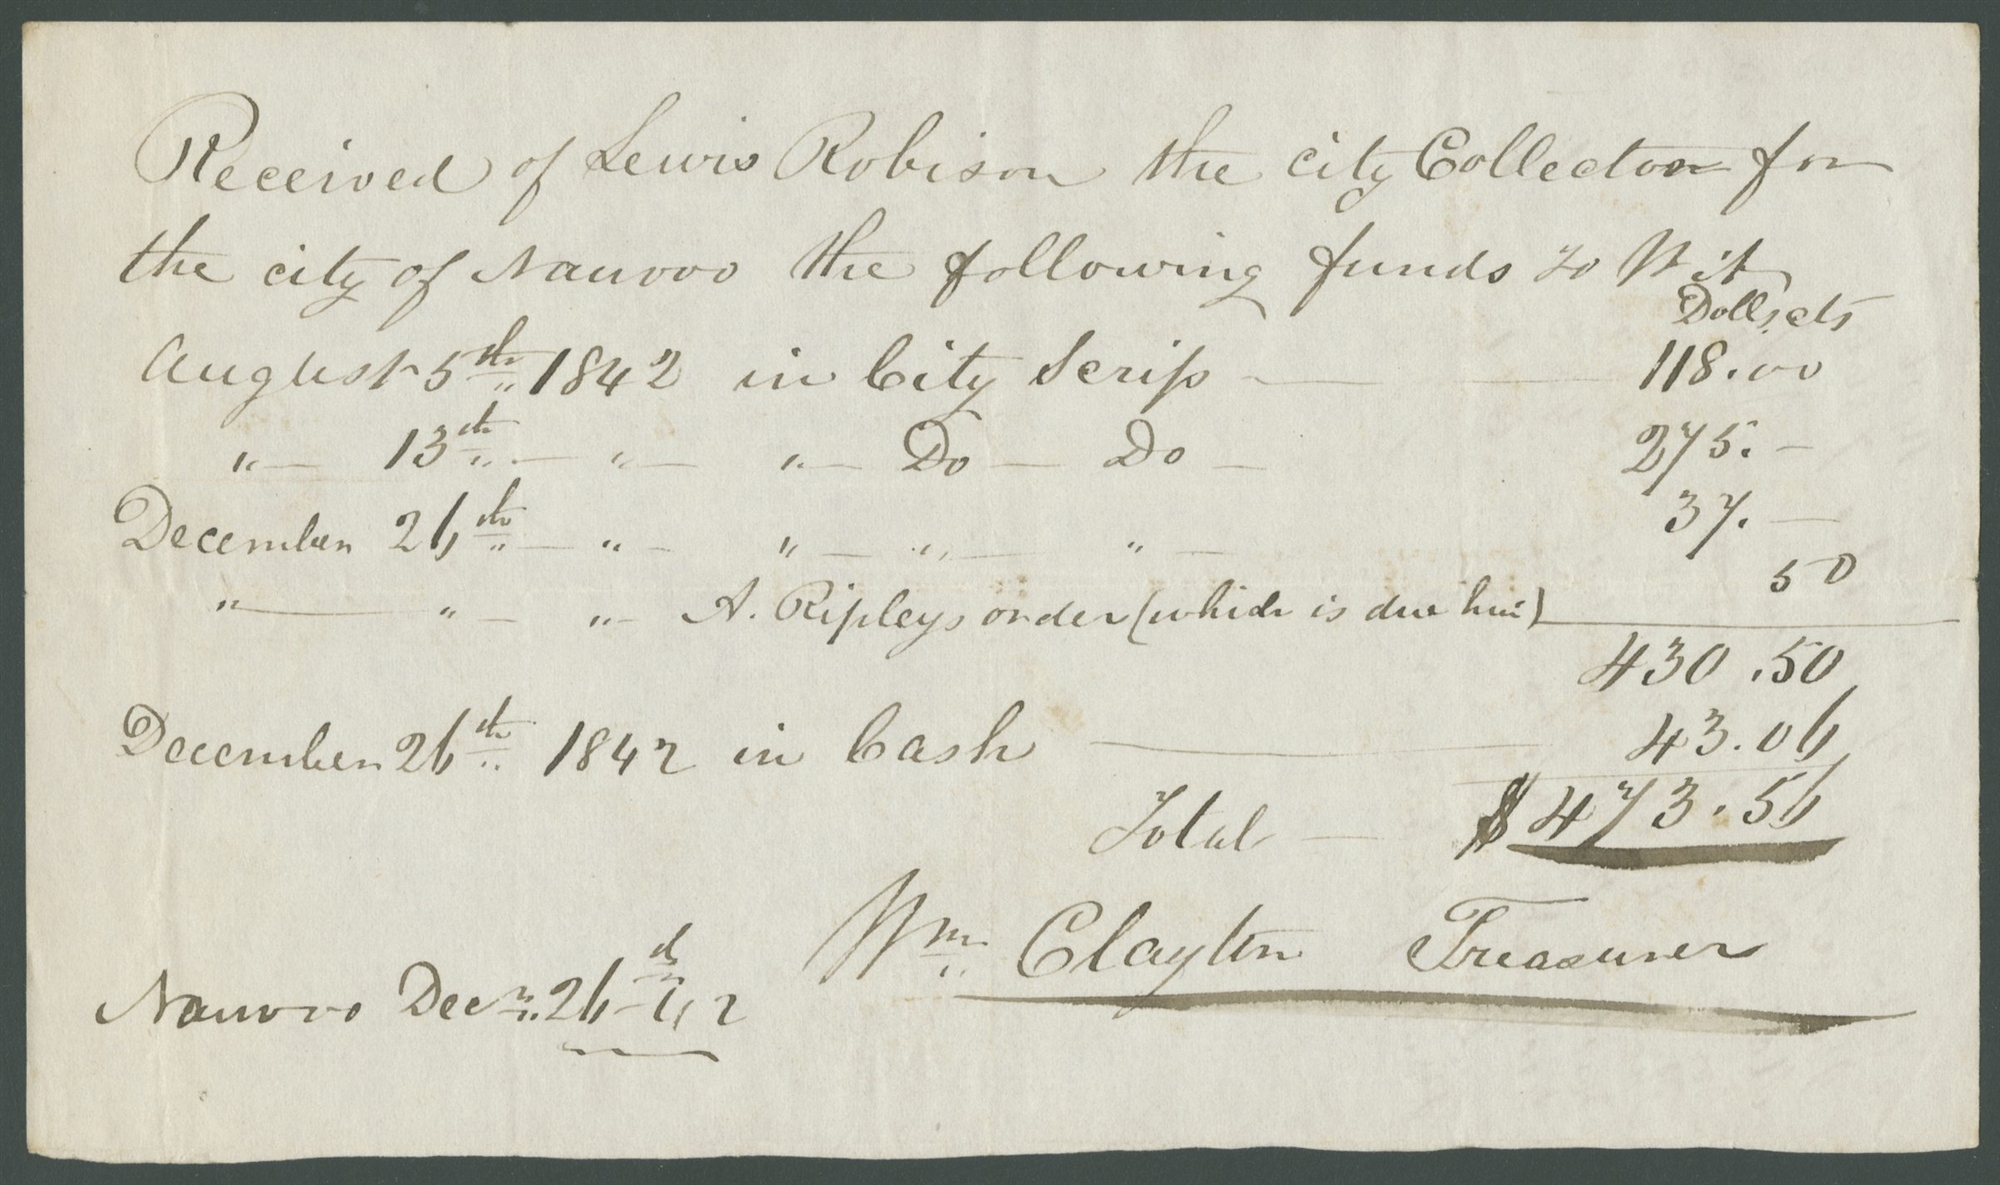 Received of Lewis Robison the city Collector for
the city of Nauvoo the following funds to Wit
Dolls, cts
August 5th 1842 in City Scrip — — 118.00
"— 13th — "— "— Do — Do — 275. —
December 26th — "— "— "— " — 37. —
"— "— "— A. Ripleys order (which is due him) 50
430.50
December 26th 1842 in Cash — 43.06
Total — $473.56
Wm Clayton Treasurer
Nauvoo Decr. 26th